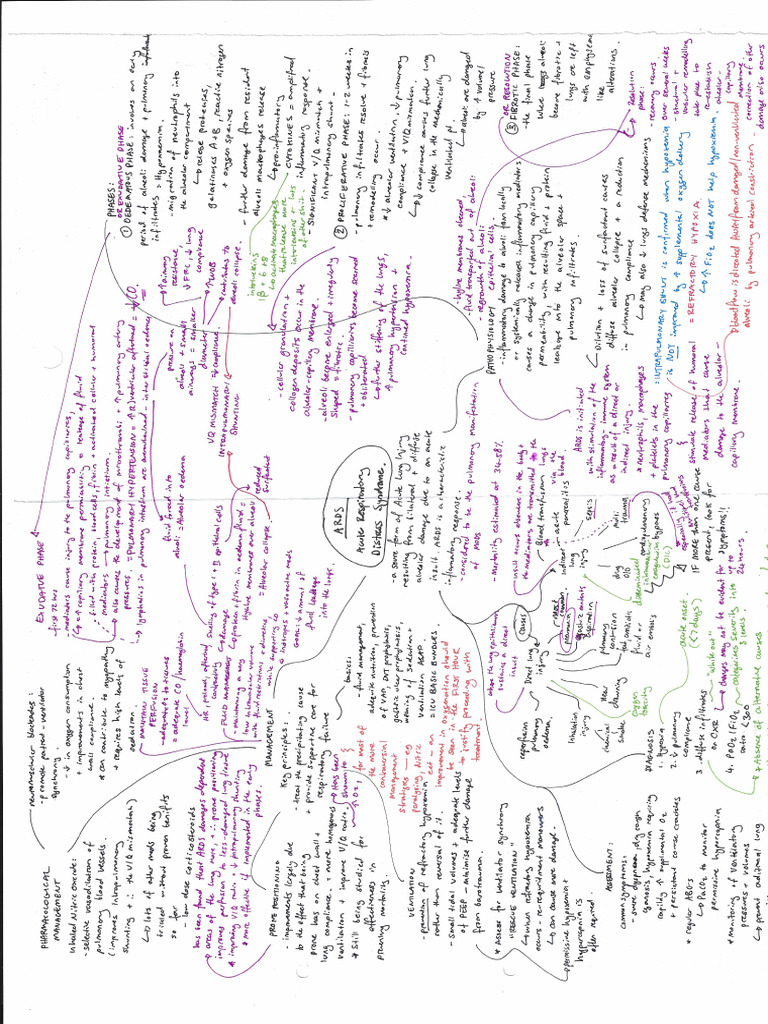 ARDS
Acute Respiratory
Distress Syndrome
- a severe form of Acute Lung Injury
resulting from bilateral + diffuse
alveolar damage due to an acute
insult. ARDS is a characteristic
inflammatory response.
- considered to be the pulmonary manifestation
of MODS
- Mortality estimated at 34-58%
PHASES:
OR EXUDATIVE PHASE
① OEDEMATOUS PHASE: involves an early
period of alveolar damage + pulmonary infiltrate
infiltrates + Hypoxaemia.
- migration of neutrophils into
the alveolar compartment
↳ release proteases,
gelatinases A+B, reactive nitrogen
+ oxygen species
- further damage from resident
alveoli macrophages release
↳ pro-inflammatory
CYTOKINES = amplified
inflammatory response.
- Significant V/Q mismatch +
intrapulmonary shunt.
② PROLIFERATIVE PHASE: 1-2 weeks in
- pulmonary infiltrates resolve + fibrosis
+ remodelling occur.
* ↓ alveolar ventilation, ↓ pulmonary
compliance + V/Q mismatch.
↳ ↓ compliance causes further lung
collapse in the mechanically
ventilated pt.
↳ alveoli are damaged
by ↑ volume /
pressure
OR RESOLUTION
③ FIBROTIC PHASE:
- the final phase
where lungs alveoli
become fibrotic +
lungs are left
with emphysema
like alterations.
Resolution
phase:
- recovery occurs
over several weeks
- structural +
vascular remodelling
take place to
re-establish
alveolar-
capillary
membrane.
- correction of other
damage also occurs
- hyaline membranes cleared
- fluid transported out of alveoli
- regrowth of alveoli
epithelial cells.
PATHOPHYSIOLOGY
- inflammatory damage to alveoli from locally
or systemically released inflammatory mediators
causes a change in pulmonary capillary
permeability with resulting fluid + protein
leakage into the alveolar space.
pulmonary infiltrates
↳ dilution + loss of surfactant causes
diffuse alveolar collapse + a reduction
in pulmonary compliance
↳ may also ↓ lungs defense mechanisms
INTRAPULMONARY SHUNT is confirmed when hypoxemia
is NOT improved by ↑ supplemental oxygen delivery
= REFRACTORY HYPOXIA
↳ ↑ FiO2 does NOT help hypoxemia.
by pulmonary arterial constriction.
ARDS is initiated
with stimulation of the
inflammatory-immune system
as a result of a direct or
indirect injury.
* neutrophils, macrophages
+ platelets in the
pulmonary capillaries
stimulate release of humoral
mediators that cause
damage to the alveolar-
capillary membrane.
- cellular granulation +
collagen deposits occur in the
alveolar-capillary membrane.
- alveoli become enlarged + irregularly
shaped = fibrotic.
- pulmonary capillaries become scarred
+ obliterated
↳ further stiffening of the lungs,
↑ pulmonary hypertension +
continued hypoxemia.
EXUDATIVE PHASE
- first 72 hours
- mediators cause injury to the pulmonary capillaries,
↳ = ↑ capillary membrane permeability = leakage of fluid
filled with protein, blood cells, fibrin + activated cellular + humoral
mediators → pulmonary interstitium.
↳ also causes the development of microthrombi + ↑ pulmonary artery
pressures. = PULMONARY HYPERTENSION = ↑ (R) ventricular afterload = ↓ CO.
↳ lymphatics in pulmonary interstitium are overwhelmed = interstitial oedema
fluid forced into
alveoli = Alveolar oedema
alveoli + small
airways = smaller
diameter
↑ airway
resistance,
↓ FRC, ↓ lung
compliance
↑ WOB
contributes to
alveoli collapse.
V/Q MISMATCH
INTRAPULMONARY
SHUNTING
= Alveolar collapse
reduced
surfactant
MANAGEMENT
Key principles:
- treat the precipitating cause
+ provide supportive care for
respiratory failure
basics:
- fluid management,
adequate nutrition, prevention
of VAP, DVT prophylaxis,
gastric ulcer prophylaxis,
weaning of sedation +
ventilation ASAP.
= ICU BASIC BUNDLES
for most of
the more
controversial
management
strategies - eg.
paralysing, Nitric
ect - an
improvement in oxygenation should
be seen in the FIRST HOUR
to justify proceeding with
treatment.
FLUID MANAGEMENT
- maintaining a very
low intravascular volume
with fluid restrictions + diuretics
while supporting CO
c inotropes + vasoactive meds
GOAL: ↓ amount of
fluid leakage
into the lungs.
MAINTAIN TISSUE
PERFUSION
- adequate CO / haemoglobin
levels
neuromuscular blockades:
- promote patient-ventilator
synchrony
- ↓ in oxygen consumption
+ improvements in chest
wall compliance.
* can contribute to myopathy
+ requires high levels of
sedation.
PHARMACOLOGICAL
MANAGEMENT
Inhaled Nitric Oxide:
- selective vasodilation of
pulmonary blood vessels.
(improves intrapulmonary
shunting + ∴ the V/Q mismatch)
↳ lots of other meds being
trialed without proven benefits
so far
- low dose corticosteroids
has been found that ARDS damages dependent
areas of the lung more, ∴ prone positioning
improves perfusion to less-damaged lung tissue
* improving V/Q ratio + ↓ intrapulmonary shunting
* more effective if implemented in the early
phases.
PRONE POSITIONING
- improvements largely due
to the effect that being
prone has on chest wall +
lung compliance, ∴ more homogenous
ventilation + improve V/Q ratio
* Still being studied for
effectiveness in
preventing mortality
Has been
shown to
↑ O2,
VENTILATION
- prevention of refractory hypoxemia
rather than reversal of it.
- small tidal volumes + adequate levels
of PEEP - minimise further damage
from barotrauma.
* Assess for ventilator synchrony
"RESCUE VENTILATION"
↳ when refractory hypoxemia
occurs - re-recruitment manoeuvres
↳ can cause more damage.
↳ permissive hypoxemia +
hypercapnia is
often required.
ASSESSMENT:
common symptoms:
- severe dyspnoea, dry cough
cyanosis, hypoxemia requiring
rapidly ↑ supplemental O2
+ persistent coarse crackles
* regular ABGs
↳ PaCO2 to monitor
permissive hypercapnia
* Monitoring of ventilatory
pressures + volumes
↳ prevent additional lung
DIAGNOSIS
1. Hypoxia
2. ↓ pulmonary
compliance
3. diffuse infiltrates
on CXR
"white out"
4. PaO2/FiO2
ratio <300
acute onset
(<7 days)
categorises severity into
3 levels
* Absence of alternative causes
changes may not be evident for
up to
24 hours
CAUSES
Direct lung
injury
where the lung epithelium
sustains a direct
insult
most common
pneumonia
gastric contents
aspiration
pulmonary
contusion
fat, amniotic
fluid or
air embolis
near
drowning
Oxygen
toxicity
inhalation
injury
chemicals
smoke
reperfusion
pulmonary
oedema
indirect
lung
injury
insult occurs elsewhere in the body +
the mediators are transmitted to the
lungs
via the
blood.
Blood transfusion
acute
pancreatitis
sepsis
multi
trauma
cardiopulmonary
bypass
drug
O/D
disseminated
intravascular
coagulation
(DIC)
IF more than one cause
present, look for
symptoms!!